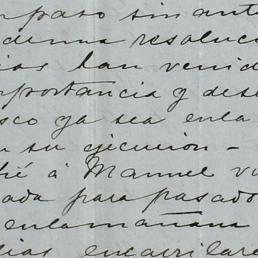 paso sin ante
resoluc
las tan venid
mportancia y des
sco ya sea en la
su ejecucion –
é á Manuel v
ada para pasado
en la mañana
dias encarrilare